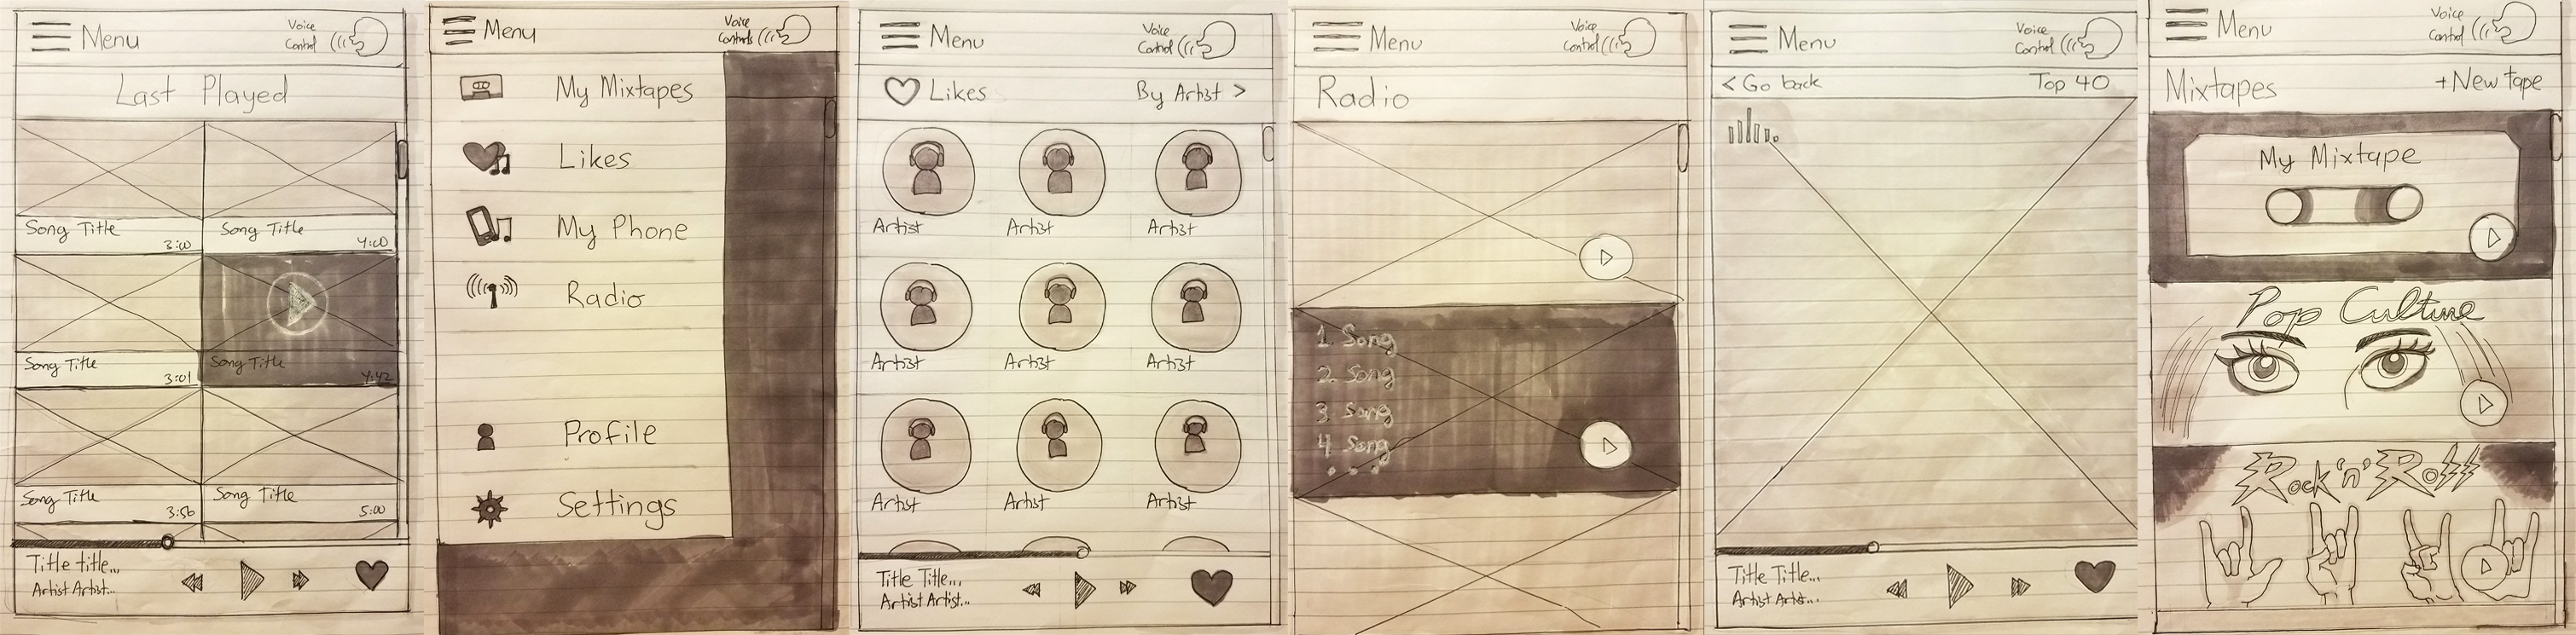 Menu
Voice
Control
Last Played
Song Title
3:00
Song Title
4:00
Song Title
3:01
Song Title
4:42
Song Title
3:56
Song Title
5:00
Title title...
Artist Artist...
Menu
Voice
Controls
My Mixtapes
Likes
My Phone
Radio
Profile
Settings
Menu
Voice
Control
Likes
By Artist >
Artist
Artist
Artist
Artist
Artist
Artist
Artist
Artist
Artist
Title Title...
Artist Artist...
Menu
Voice
Control
Radio
1. Song
2. Song
3. Song
4 Song
...
Menu
Voice
Control
< Go back
Top 40
Title Title...
Artist Artist...
Menu
Voice
Control
Mixtapes
+New tape
My Mixtape
Pop Culture
Rock 'n' Roll